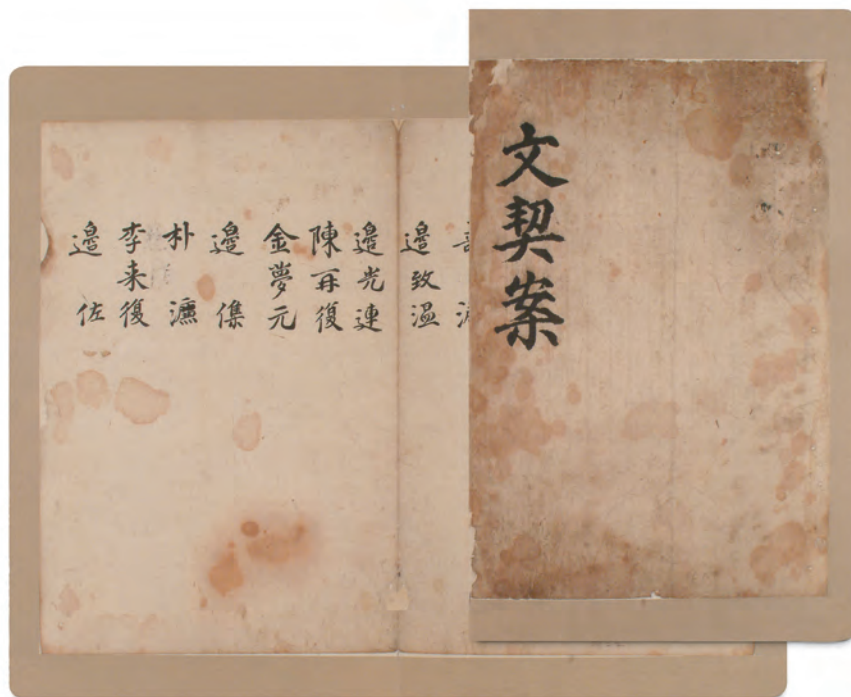 文契案
邊致温
邊光連
陳再復
金夢元
邊
朴 濂
李来復
邊 佐